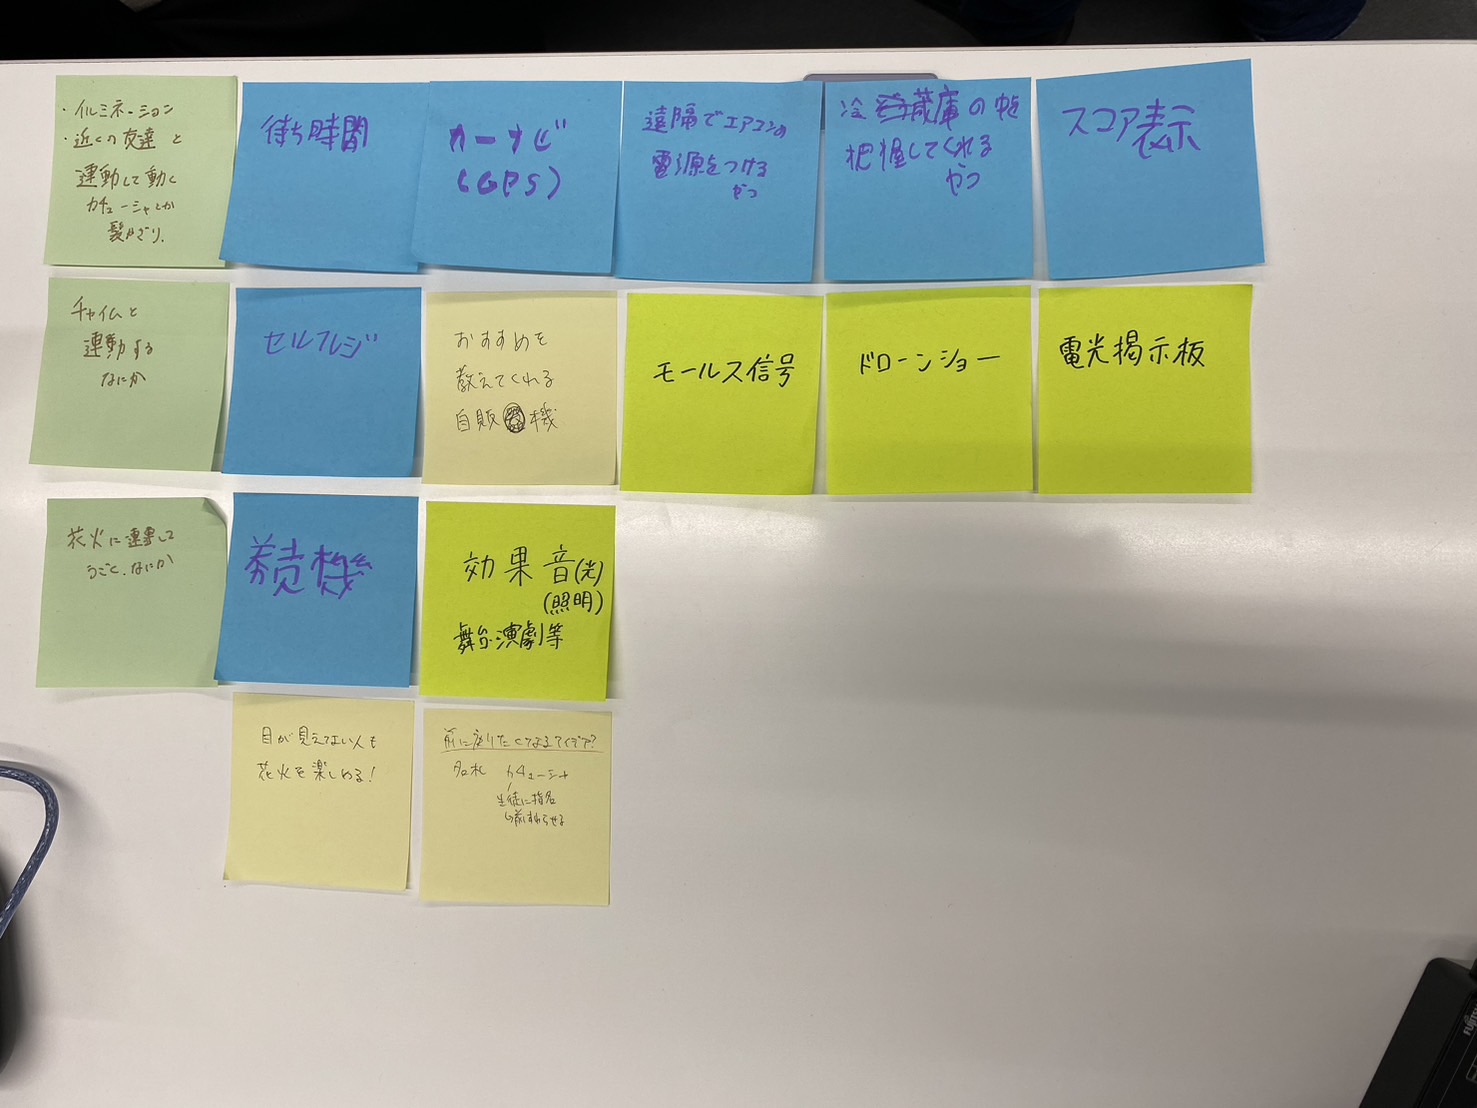 ・イルミネーション
・近くの友達と
連動して動く
カチューシャとか
髪かざり.
待ち時間
カーナビ
(GPS)
遠隔でエアコンの
電源をつける
やつ
冷蔵庫の中
把握してくれる
やつ
スコア表示
チャイムと
連動する
なにか
セルフレジ
おすすめを
教えてくれる
自販機
モールス信号
ドローンショー
電光掲示板
花火に連動して
なにか
券売機
効果音(光)
(照明)
舞台・演劇等
目が見えない人も
花火を楽しめる!
前に座りたくなるアイデア?
名札 カチューシャ
生徒に指名